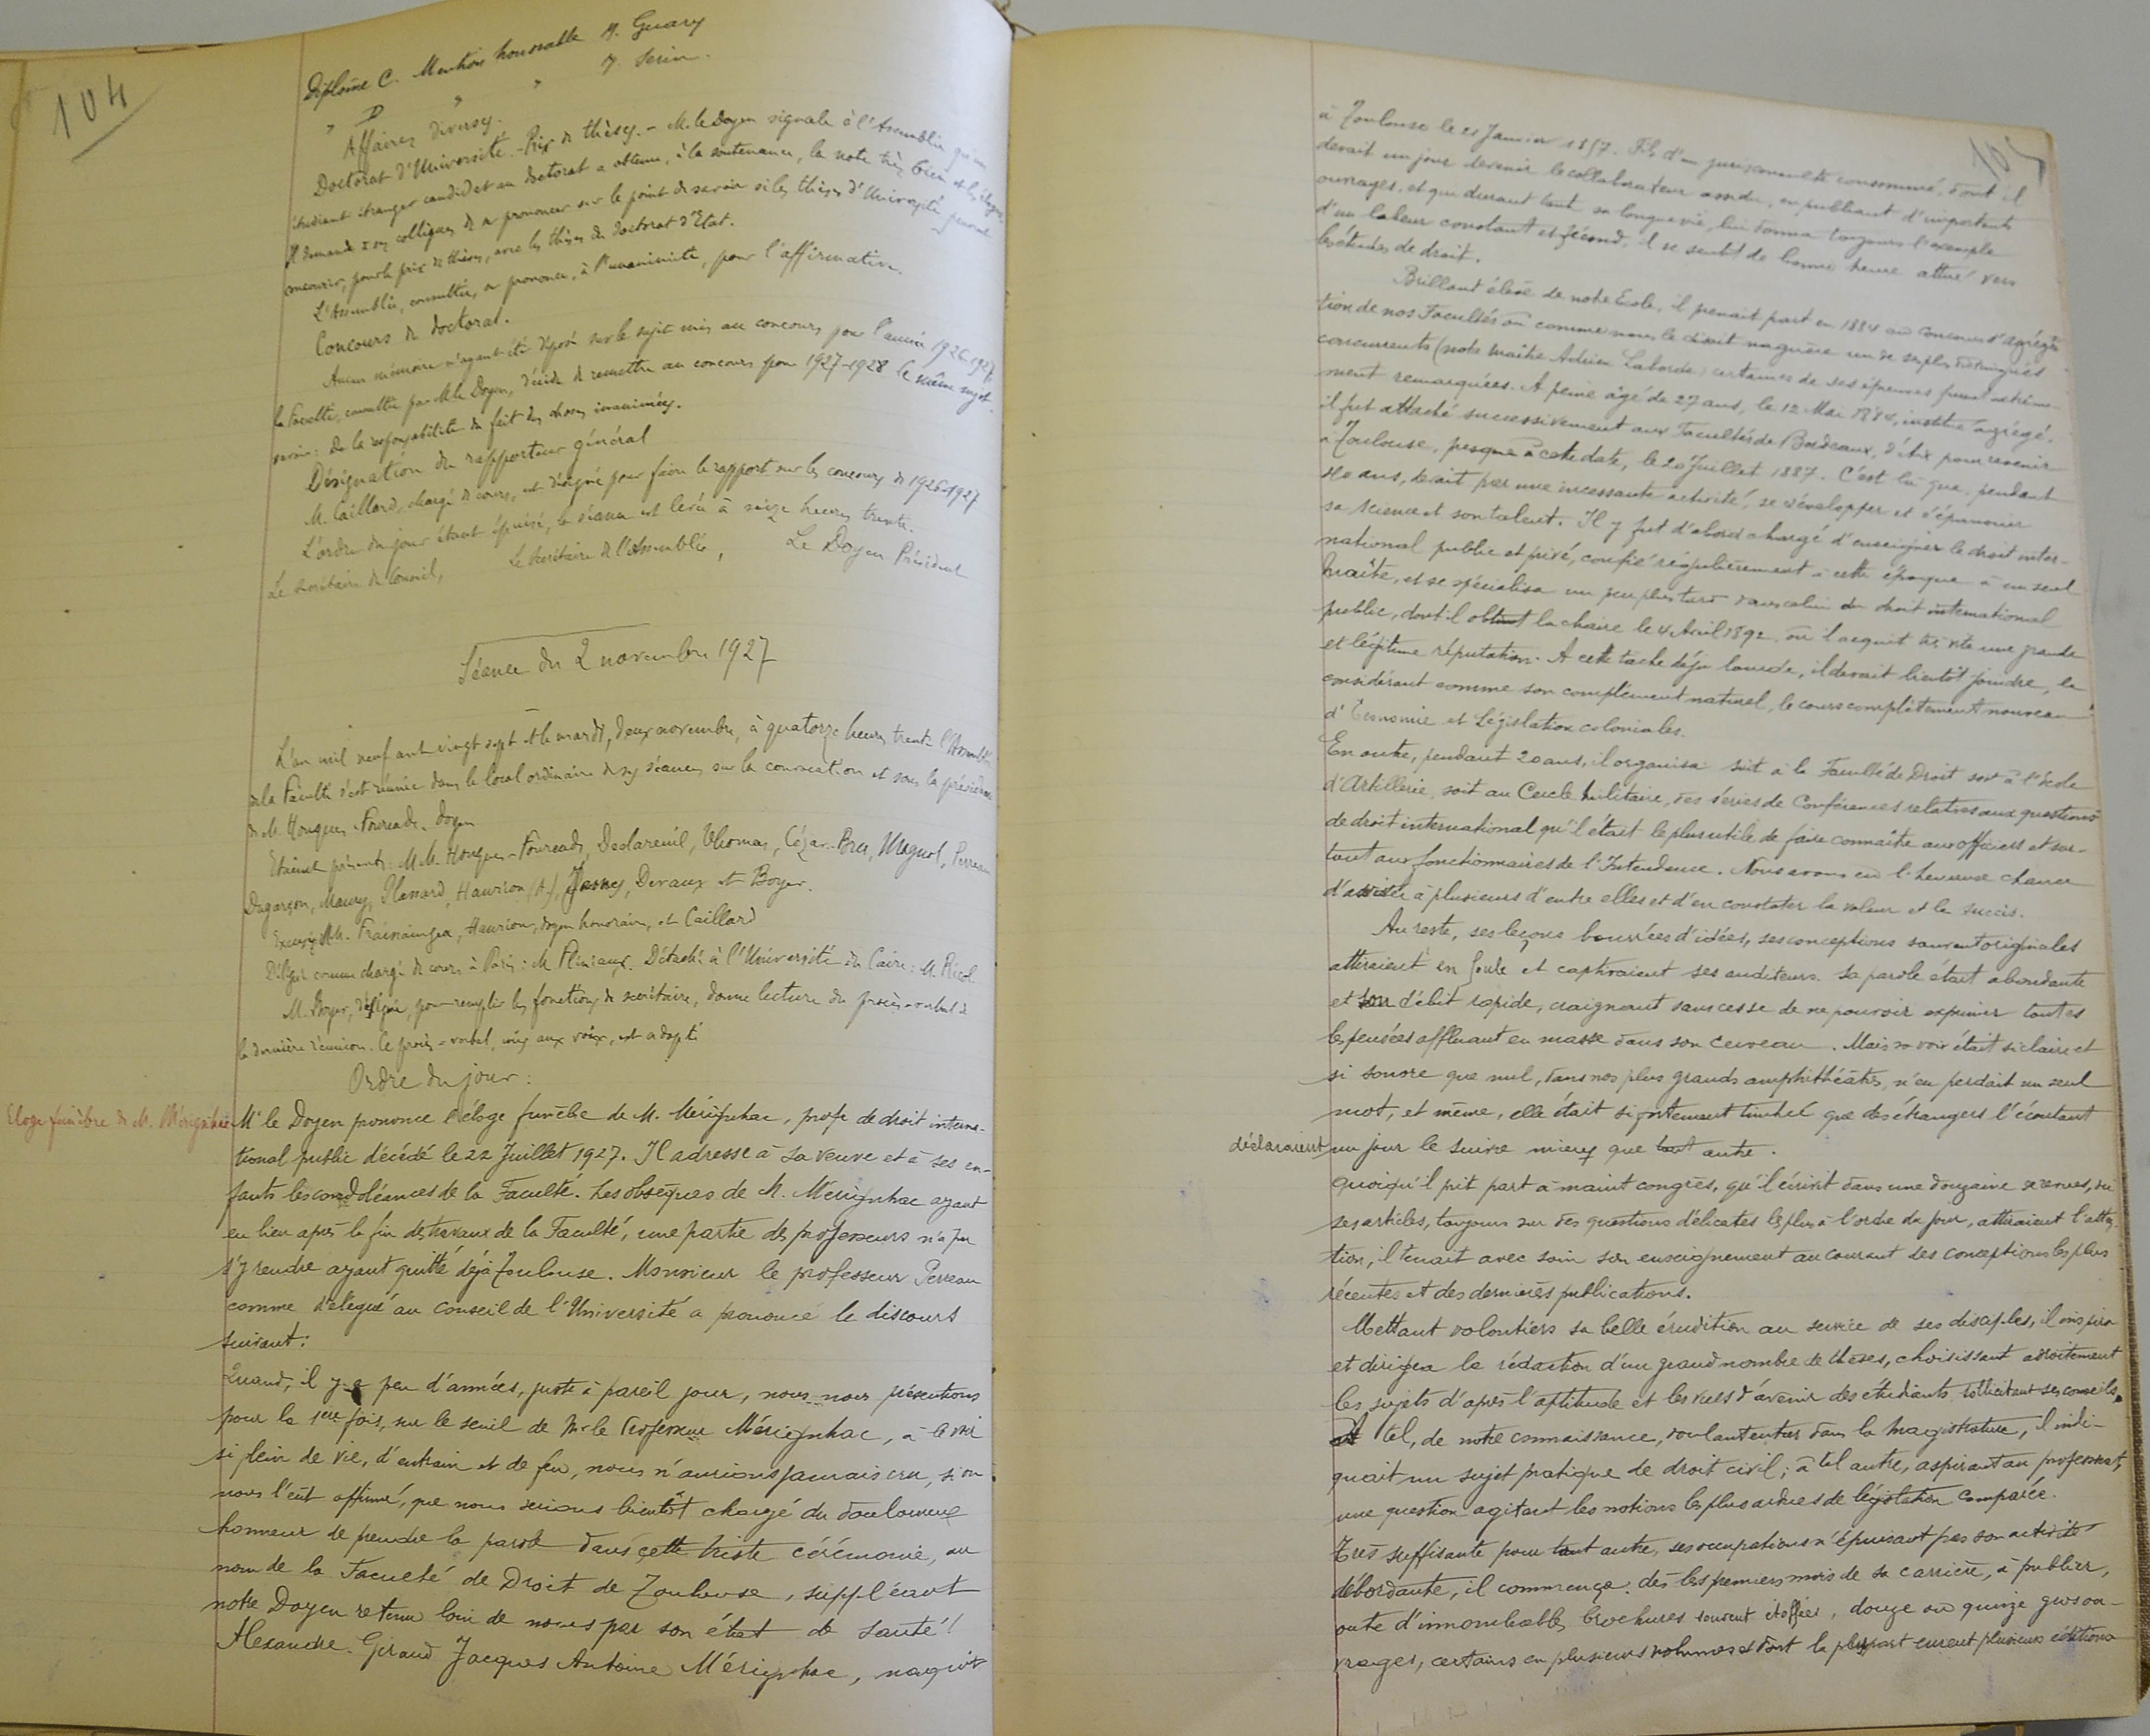 104
Diplôme C. Mention honorable M. Guary
" D " " M. Serin.
Affaires diverses.
Doctorat d'Université. - Prix de thèses. - M. le Doyen signale à l'Assemblée qu'un
étudiant étranger candidat au doctorat a obtenu, à la soutenance, la note très bien et les éloges.
Il demande à ses collègues de se prononcer sur le point de savoir si les thèses d'Université peuvent
concourir, pour le prix de thèses, avec les thèses du doctorat d'Etat.
L'Assemblée, consultée, se prononce, à l'unanimité, pour l'affirmative.
Concours de doctorat.
Aucun mémoire n'ayant été déposé sur le sujet mis au concours pour l'année 1926-1927
la Faculté, consultée par M. le Doyen, décide de remettre au concours pour 1927-1928 le même sujet.
savoir: De la responsabilité du fait des choses inanimées.
Désignation du rapporteur général
M. Caillard, chargé de cours, est désigné pour faire le rapport sur les concours de 1926-1927
L'ordre du jour étant épuisé, la séance est levée à seize heures trente.
Le Secrétaire du Conseil, Le Secrétaire de l'Assemblée, Le Doyen Président
Séance du 2 novembre 1927
L'an mil neuf cent vingt sept et le mardi, deux novembre, à quatorze heures trente l'Assemblée
de la Faculté s'est réunie dans le local ordinaire de ses séances sur la convocation et sous la présidence
de M. Houques-Fourcade, doyen
Etaient présents: MM. Houques-Fourcade, Declareuil, Thomas, Cézar-Bru, Magnol, Perreau
Dugarçon, Maury, Plassard, Hauriou (A.), Jesney, Devaux et Boyer.
Excusés MM. Fraissaingea, Hauriou, doyen honoraire, et Caillard
Délégué comme chargé de cours à Paris: M. Pliniaux. Détaché à l'Université du Caire: M. Ricol
M. Boyer, désigné, pour remplir les fonctions de secrétaire, donne lecture du procès-verbal de
la dernière réunion. Ce procès-verbal, mis aux voix, est adopté
Ordre du jour:
Eloge funèbre de M. Mérignhac
Mr le Doyen prononce l'éloge funèbre de M. Mérignhac, profr de droit interna-
tional public décédé le 22 Juillet 1927. Il adresse à sa veuve et à ses en-
fants les condoléances de la Faculté. Les obsèques de M. Mérignhac ayant
eu lieu après la fin des travaux de la Faculté, une partie des professeurs n'a pu
s'y rendre ayant quitté déjà Toulouse. Monsieur le professeur Perreau
comme délégué au Conseil de l'Université a prononcé le discours
suivant:
Quand, il y a peu d'années, juste à pareil jour, nous nous présentions
pour la 1ere fois, sur le seuil de Mr le Professeur Mérignhac, à le voir
si plein de vie, d'entrain et de feu, nous n'aurions jamais cru, si on
nous l'eût affirmé, que nous serions bientôt chargé du douloureux
honneur de prendre la parole dans cette triste cérémonie, au
nom de la Faculté de Droit de Toulouse, suppléant
notre Doyen retenu loin de nous par son état de santé!
Alexandre Giraud Jacques Antoine Mérignhac, naquit
105
à Toulouse le 21 Janvier 1857. Fils d'un jurisconsulte consommé, dont il
devait un jour devenir le collaborateur assidu, en publiant d'importants
ouvrages, et qui durant toute sa longue vie, lui donna toujours l'exemple
d'un labeur constant et fécond, il se sentit de bonne heure attiré vers
les études de droit.
Brillant élève de notre Ecole, il prenait part en 1884 au concours d'agréga-
tion de nos Facultés où comme nous le disait naguère un de ses plus distingués
concurrents (notre maître Adrien Laborde) certaines de ses épreuves furent extrême-
ment remarquées. A peine âgé de 27 ans, le 12 Mai 1884, institué agrégé,
il fut attaché successivement aux Facultés de Bordeaux, d'Aix pour revenir
à Toulouse, presque à cette date, le 20 Juillet 1887. C'est là que, pendant
40 ans, devait par une incessante activité, se développer et s'épanouir
sa science et son talent. Il y fut d'abord chargé d'enseigner le droit inter-
national public et privé, confié régulièrement à cette époque à un seul
maître, et se spécialisa un peu plus tard dans celui du droit international
public, dont il obtint la chaire le 4 Avril 1892 où il acquit très vite une grande
et légitime réputation. A cette tache déjà lourde, il devait bientôt joindre, le
considérant comme son complément naturel, le cours complètement nouveau
d'Economie et Législation coloniales.
En outre, pendant 20 ans, il organisa soit à la Faculté de Droit soit à l'Ecole
d'Artillerie, soit au Cercle Militaire, des séries de Conférences relatives aux questions
de droit international qu'il était le plus utile de faire connaître aux officiers et sur-
tout aux fonctionnaires de l'Intendance. Nous avons eu l'heureuse chance
d'assister à plusieurs d'entre elles et d'en constater la valeur et le succès.
Au reste, ses leçons bourrées d'idées, ses conceptions souvent originales
attiraient en foule et captivaient ses auditeurs. Sa parole était abondante
et son débit rapide, craignant sans cesse de ne pouvoir exprimer toutes
les pensées affluant en masse dans son cerveau. Mais sa voix était si claire et
si sonore que nul, dans nos plus grands amphithéâtres, n'en perdait un seul
mot, et même, elle était si fortement timbrée que des étrangers l'écoutant
déclaraient un jour le suivre mieux que tout autre.
Quoiqu'il prit part à maint congrès, qu'il écrivit dans une douzaine de revues, où
ses articles, toujours sur des questions délicates les plus à l'ordre du jour, attiraient l'atten-
tion, il tenait avec soin son enseignement au courant des conceptions les plus
récentes et des dernières publications.
Mettant volontiers sa belle érudition au service de ses disciples, il inspira
et dirigea la rédaction d'un grand nombre de thèses, choisissant adroitement
les sujets d'après l'aptitude et les vues d'avenir des étudiants sollicitant ses conseils.
A tel, de notre connaissance, voulant entrer dans la Magistrature, il indi-
quait un sujet pratique de droit civil; à tel autre, aspirant au professorat,
une question agitant les notions les plus ardues de législation comparée.
Très suffisante pour tout autre, ses occupations n'épuisant pas son activité
débordante, il commença, dès les premiers mois de sa carrière, à publier,
outre d'innombrables brochures souvent étoffées, douze ou quinze gros ou-
vrages, certains en plusieurs volumes et dont la plupart eurent plusieurs éditions